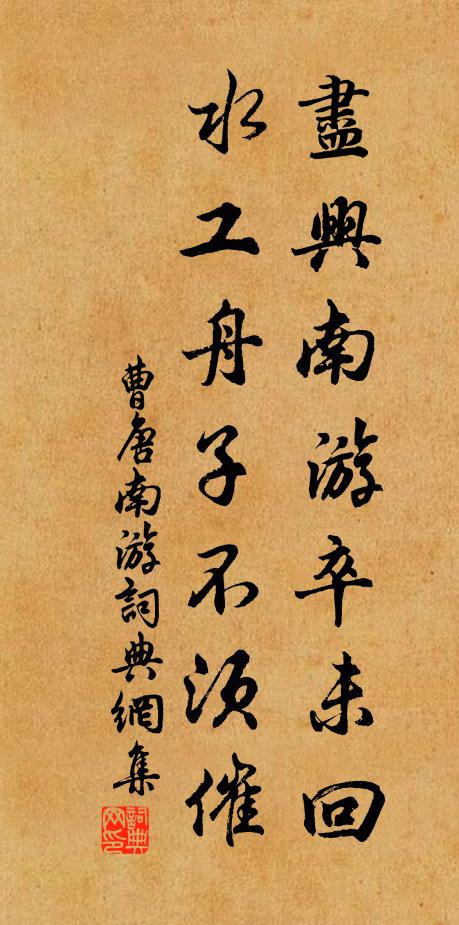 盡興南游卒未回
水工舟子不須催
曹唐南游詞典網集
詞典网印